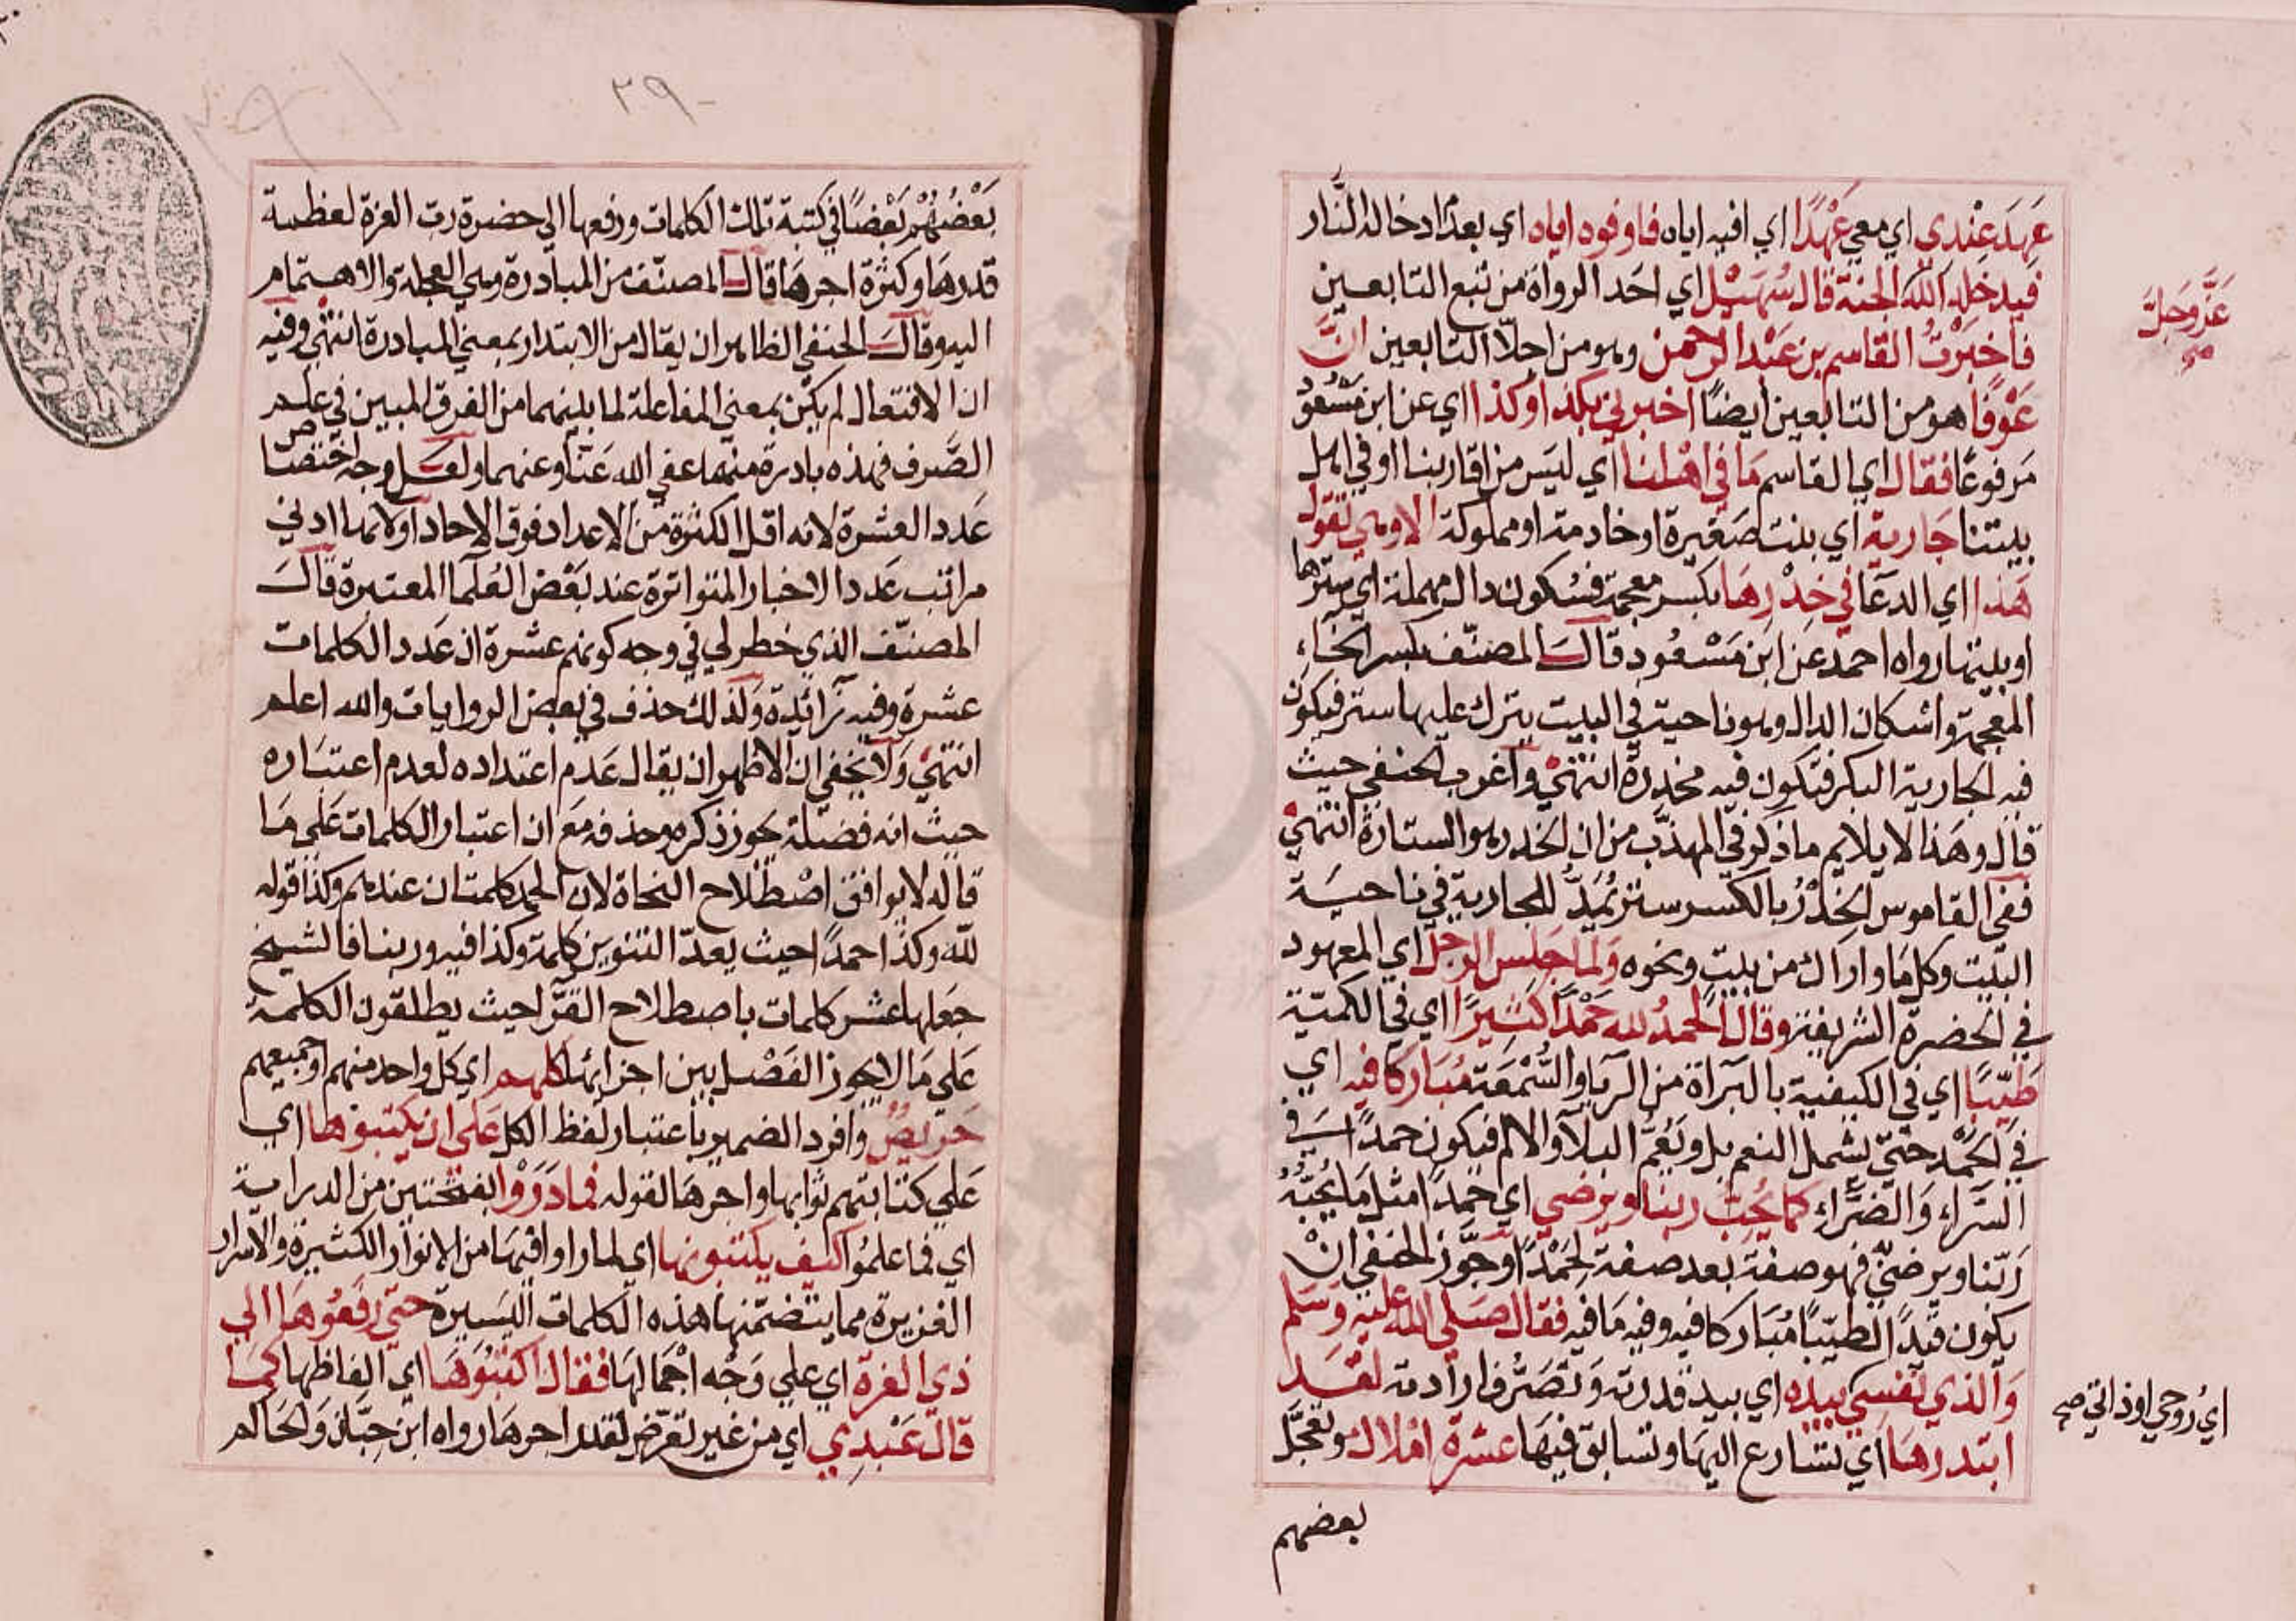 عَهِدَ عِنْدي اي معي عَهْدًا اي افيه اياه فاوفوه اياه اي بعد ادخاله النَّار
فيدخله الله الجنة قال سُهَيْل اي احَد الرواة من تبع التابعين
عَزَّ وَجَلَّ
فاخبَرْتُ القاسم بن عَبْد الرحمن وهو من اجلّا التابعين انَّ
عَوْفًا هو من التابعين ايضًا اخبرني بكذا وكذا اي عن ابن مَسْعُود
مَرفوعًا فقال اي القاسم مَا في اهْلنا اي ليَس من اقاربنا او في اهل
بيتنا جَارية اي بنت صَغيرة او خادمة او مملوكة الا وهي تقول
هَذا اي الدعَا في خِدْرِهَا بكسر معجمة فسُكون دال مهملة اي سترها
او بيتها رواه احمد عَن ابن مَسْعُود قالَ المصنّف بكسر الخاء
المعجمة واسْكان الدال وهو ناحية في البيت يترك عليها ستر فيكون
فيه الجارية البكر فتكون فيه مخدرة انتهَيْ وَاغرب الحنفي حيث
قال وهَذا لا يلايم ماذكر في المهذّب من ان الخدر هو الستارة انتهَيْ
ففي القاموس الخِدْرُ بالكسر ستر يُمَدُّ للجارية في ناحيَة
البَيت وكل مَا واراك من بيتٍ ونحوه وَلما جَلس الرجلُ اي المعهود
في الحضرة الشريفة وقال الحَمدُ لله حَمْدًا كثيرًا اي في الكميّة
طَيّبًا اي في الكيفية بالبَرآة من الريَا والسُّمْعَة مُبَاركا فيه اي
في الحَمْد حَتيّ يشمل النعم بل ويَعُمّ البلآ والالم فيكون حمدًا في
السَّراء وَالضرّاء كما يُحِبُّ ربنا ويرضي اي حَمدًا مثل مَا يُحِبُّهُ
رَبّنا ويرضيّ فهو صفة بعد صفة لحَمْدًا وجَوَّز الحنفي انْ
يكون قيدًا لطيّبًا مُبَاركا فيه وفيه مَا فيه فقال صَلي الله عليه وَسَلم
وَالذي نفسي بيده اي بيد قدرته وَتصَرُّف ارادته لقَد
اي رُوحي او ذاتي صح
ابتدرهَا اي تسَارع اليهَا وتسَابق فيهَا عشرة املاك وتعجَّل
بعضهم
٣٩٠
بَعْضُهُمْ بَعْضًا في كتبة تلك الكلمات ورفعها الي حضرة ربّ العزة لعظمة
قدرهَا وكثرة اجرهَا قال المصنّف من المبادرة وهي العجلة والاهتمام
اليه وقالَ الحنفي الظاهر ان يقال من الابتدار بمعني المبادرة انتهي وفيه
ان الافتعال لم يكن بمعني المفاعلة لما بينهما من الفرق المبين في علم
الصَّرف فهذه بادرة منهما عفي الله عَنّا وعنهما ولعَل وجه اختصَا ص
عَدد العشرة لانه اقل الكثرة من الاعداد فوق الاحاد او لانها ادني
مراتب عَدد الاخبار المتواترة عند بَعْض العُلمآ المعتبرة قالَ
المصنّف الذي خطر لي في وجه كونهم عشرة ان عَدد الكلمات
عشرة وفيه زآئدة وَلذلك حذف في بعض الروايات والله اعلم
انتهيْ وَلا يخفي ان الاظهر ان يقال عَدم اعتداده لعدم اعتبَاره
حيث انه فضلة يجوز ذكره وحذفه مَع ان اعتبار الكلمات عَلي مَا
قاله لا يوافق اصْطلاح النحاة لان الحمد كلمتان عندهم وكذا قوله
لله وكذا حمدًا حيث يعدّ التنوين كلمة وكذا فيه وربنا فالشيخ
جَعلها عشر كلمات باصطلاح القرّآ حيث يطلقون الكلمة
عَلي مَا لا يجوز الفَصْل بين اجزائها كلهم اي كل واحد منهم او جميعهم
حَريصٌ وافرد الضمير باعتبار لفظ الكل عَلي ان يكتبوهَا اي
عَلي كتابتهم ثوابها واجرهَا لقوله فمادَرَوْا بفتحتين من الدراية
اي فما علمُوا كيف يكتبونها اي لما راوا فيهَا من الانوار الكثيرة والاسرار
الغزيرة مما يتضمّنهَا هذه الكلمات اليَسيرة حتيّ رفعُوهَا الي
ذي العزة اي علي وَجْه اجْمَالهَا فقال اكتبُوهَا اي الفاظها كمَا
قال عَبْدِي اي من غير تعرّض لقدر اجرهَا رواه ابن حِبّان وَالحَاكم